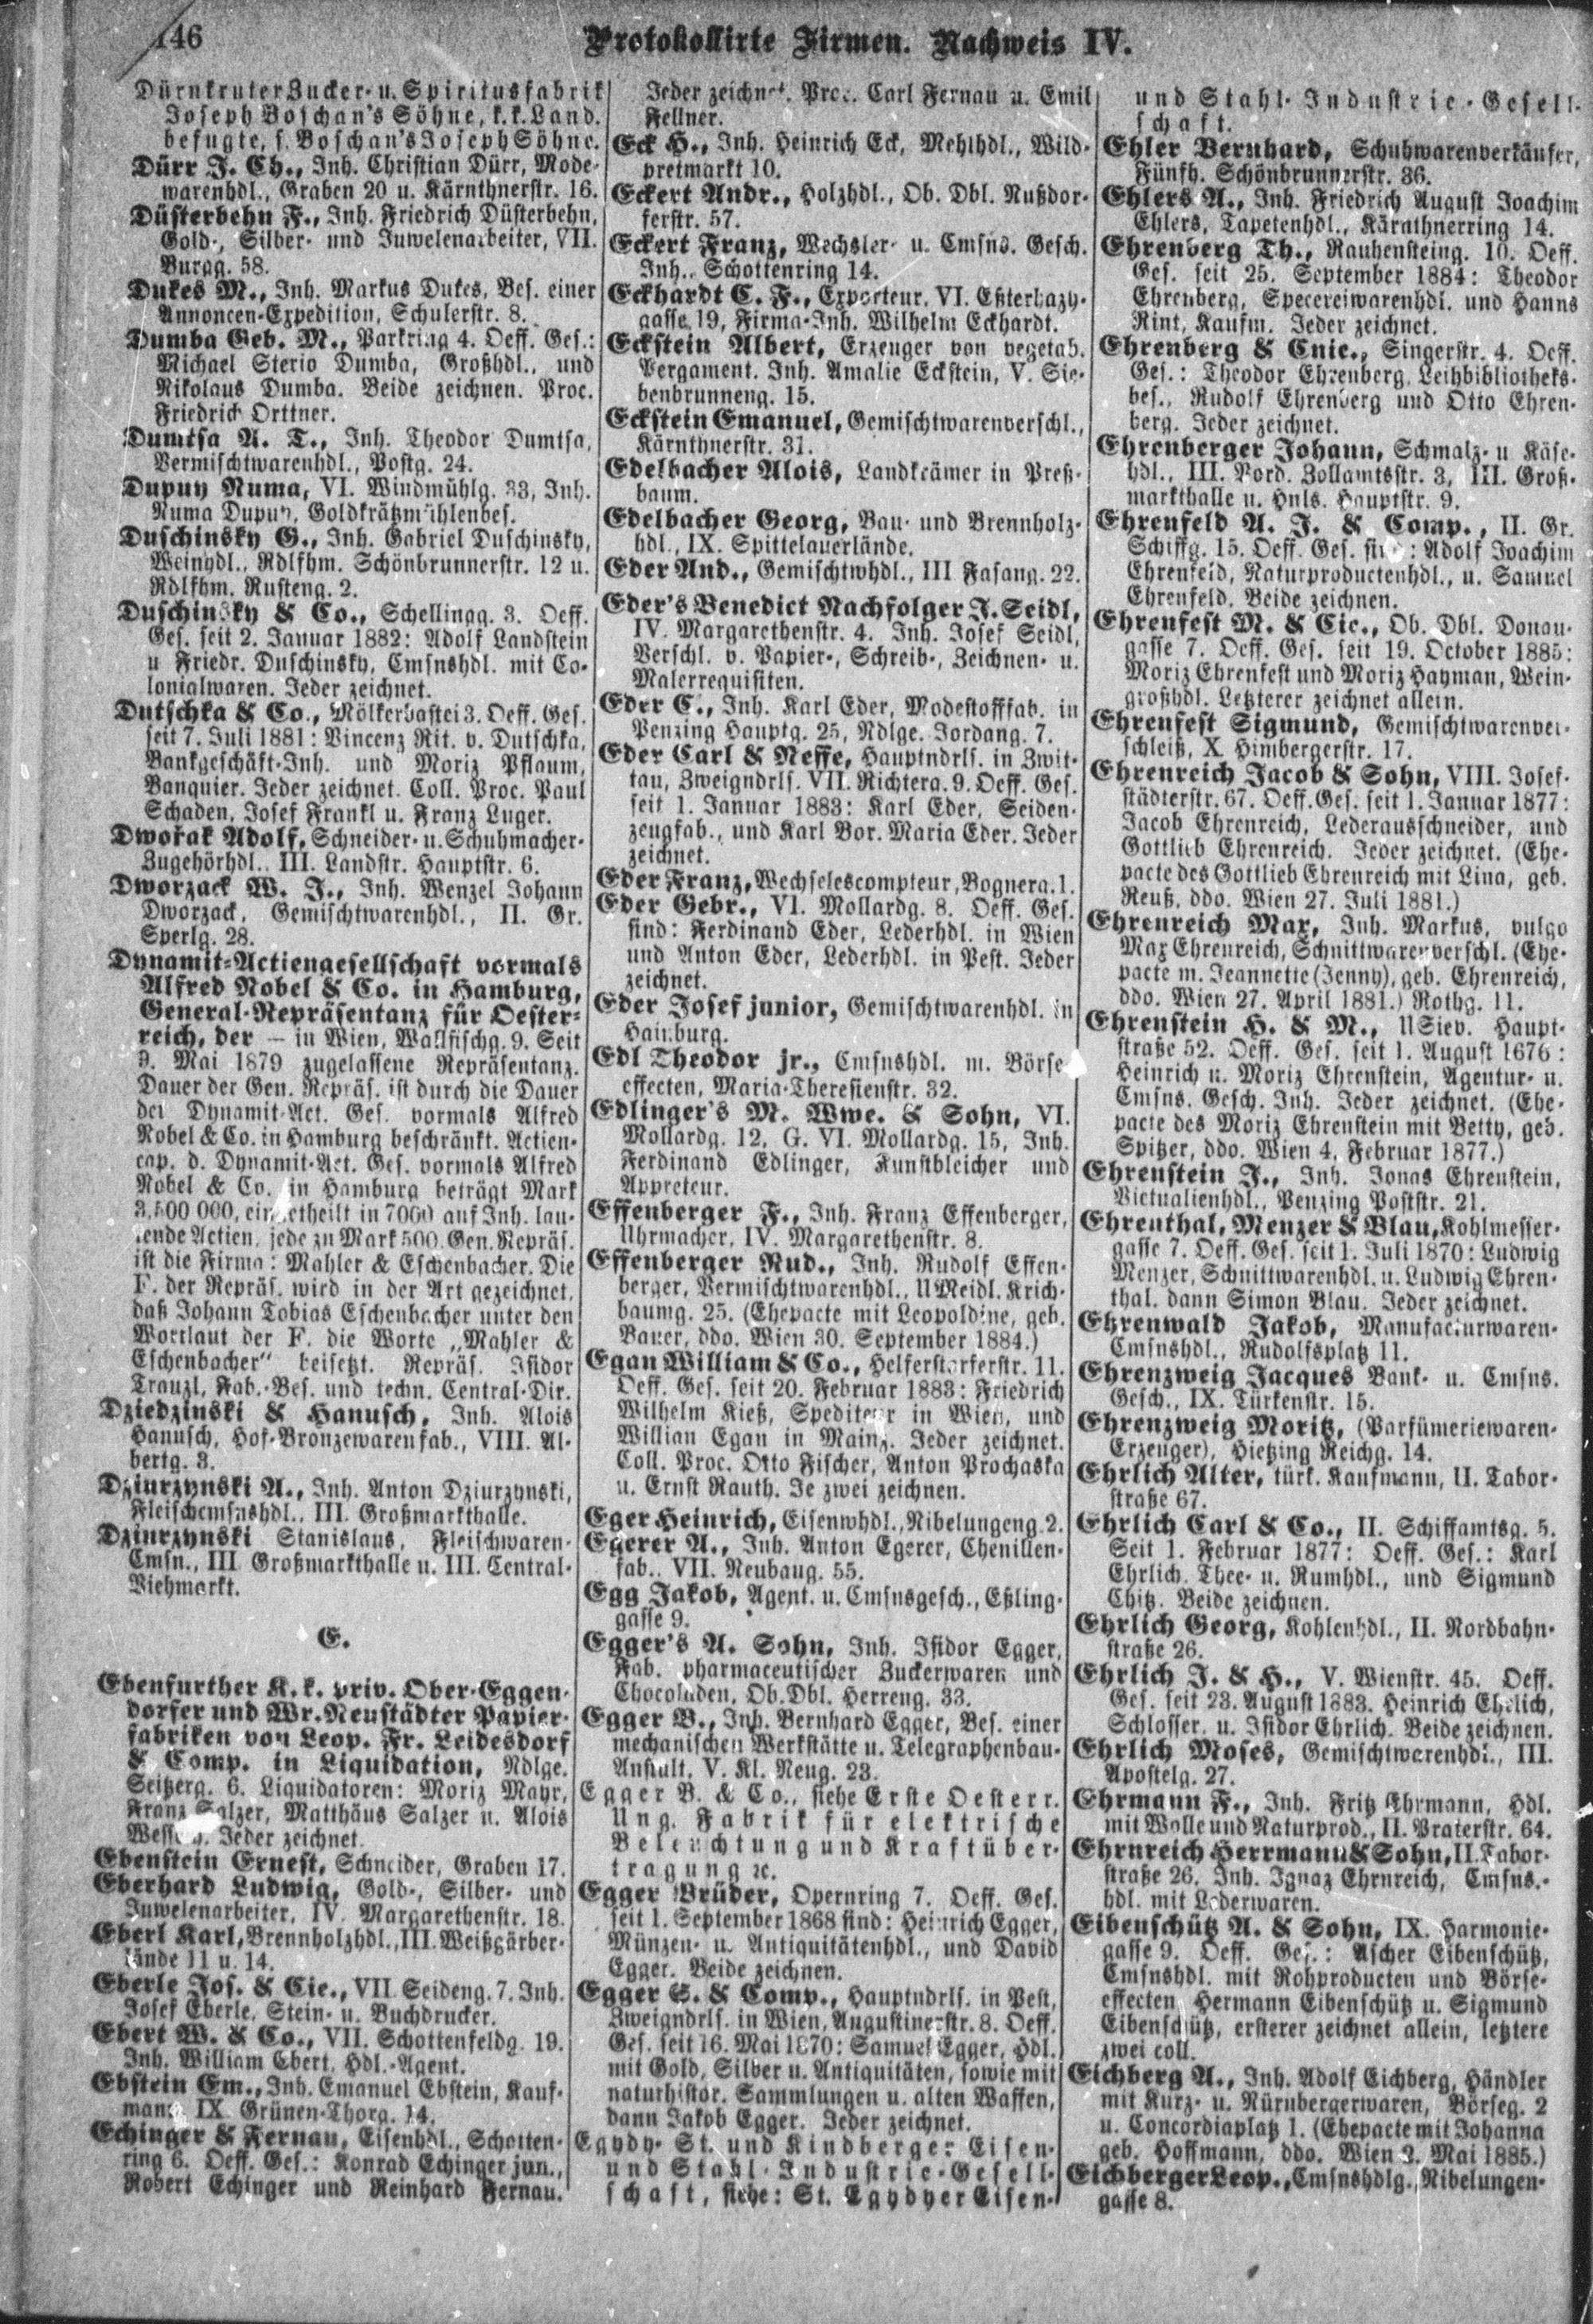 146
Protokollirte Firmen. Nachweis IV.
Dürnkruter Zucker- u. Spiritusfabrik
Joseph Boschan's Söhne, k. k. Land.
befugte, s. Boschan's Joseph Söhne.
Dürr J. Ch., Inh. Christian Dürr, Mode-
warenhdl., Graben 20 u. Kärnthnerstr. 16.
Düsterbehn F., Inh. Friedrich Düsterbehn,
Gold-, Silber- und Juwelenarbeiter, VII.
Burgg. 58.
Dukes M., Inh. Markus Dukes, Bes. einer
Annoncen-Expedition, Schulerstr. 8.
Dumba Geb. M., Parkring 4. Oeff. Ges.:
Michael Sterio Dumba, Großhdl., und
Nikolaus Dumba. Beide zeichnen. Proc.
Friedrich Orttner.
Dumtsa A. T., Inh. Theodor Dumtsa,
Vermischtwarenhdl., Postg. 24.
Dupuy Numa, VI. Windmühlg. 33, Inh.
Numa Dupuy, Goldkrätzmühlenbes.
Duschinsky G., Inh. Gabriel Duschinsky,
Weinhdl., Rdlfhm. Schönbrunnerstr. 12 u.
Rdlfhm. Rusteng. 2.
Duschinsky & Co., Schellingg. 3. Oeff.
Ges. seit 2. Januar 1882: Adolf Landstein
u Friedr. Duschinsky, Cmsnshdl. mit Co-
lonialwaren. Jeder zeichnet.
Dutschka & Co., Mölkerbastei 3. Oeff. Ges.
seit 7. Juli 1881: Vincenz Rit. v. Dutschka,
Bankgeschäft-Inh. und Moriz Pflaum,
Banquier. Jeder zeichnet. Coll. Proc. Paul
Schaden, Josef Frankl u. Franz Luger.
Dwořak Adolf, Schneider- u. Schuhmacher-
Zugehörhdl., III. Landstr. Hauptstr. 6.
Dworzack W. J., Inh. Wenzel Johann
Dworzack, Gemischtwarenhdl., II. Gr.
Sperlg. 28.
Dynamit-Actiengesellschaft vormals
Alfred Nobel & Co. in Hamburg,
General-Repräsentanz für Oester-
reich, der — in Wien, Wallfischg. 9. Seit
9. Mai 1879 zugelassene Repräsentanz.
Dauer der Gen. Repräs. ist durch die Dauer
der Dynamit-Act. Ges. vormals Alfred
Nobel & Co. in Hamburg beschränkt. Actien-
cap. d. Dynamit-Act. Ges. vormals Alfred
Nobel & Co. in Hamburg beträgt Mark
3,500 000, eingetheilt in 7000 auf Inh. lau-
tende Actien, jede zu Mark 500. Gen. Repräs.
ist die Firma: Mahler & Eschenbacher. Die
F. der Repräs. wird in der Art gezeichnet,
daß Johann Tobias Eschenbacher unter den
Wortlaut der F. die Worte „Mahler &
Eschenbacher" beisetzt. Repräs. Isidor
Trauzl, Fab.-Bes. und techn. Central-Dir.
Dziedzinski & Hanusch, Inh. Alois
Hanusch, Hof-Bronzewarenfab., VIII. Al-
bertg. 3.
Dziurzynski A., Inh. Anton Dziurzynski,
Fleischcmsnshdl., III. Großmarkthalle.
Dziurzynski Stanislaus, Fleischwaren-
Cmsn., III Großmarkthalle u. III. Central-
Viehmarkt.
E.
Ebenfurther K. k. priv. Ober-Eggen-
dorfer und Wr. Neustädter Papier-
fabriken von Leop. Fr. Leidesdorf
& Comp. in Liquidation, Ndlge.
Seitzerg. 6. Liquidatoren: Moriz Mayr,
Franz Salzer, Matthäus Salzer u. Alois
Jeder zeichnet.
Ebenstein Ernest, Schneider, Graben 17.
Eberhard Ludwig, Gold-, Silber- und
Juwelenarbeiter, IV. Margarethenstr. 18.
Eberl Karl, Brennholzhdl., III. Weißgärber-
lände 11 u. 14.
Eberle Jos. & Cie., VII. Seideng. 7. Inh.
Josef Eberle, Stein- u. Buchdrucker.
Ebert W. & Co., VII. Schottenfeldg. 19.
Inh. William Ebert, Hdl.-Agent.
Ebstein Em., Inh. Emanuel Ebstein, Kauf-
mann IX. Grünen-Thorg. 14.
Echinger & Fernau, Eisenhdl., Schotten-
ring 6. Oeff. Ges.: Konrad Echinger jun.,
Robert Echinger und Reinhard Fernau.
Jeder zeichnet. Proc. Carl Fernau u. Emil
Fellner.
Eck H., Inh. Heinrich Eck, Mehlhdl., Wild-
pretmarkt 10.
Eckert Andr., Holzhdl., Ob. Dbl. Nußdor-
ferstr. 57.
Eckert Franz, Wechsler- u. Cmsns. Gesch.
Inh., Schottenring 14.
Eckhardt C. F., Exporteur, VI. Eßterhazy-
gasse 19, Firma-Inh. Wilhelm Eckhardt.
Eckstein Albert, Erzeuger von vegetab.
Pergament. Inh. Amalie Eckstein, V. Sie-
benbrunneng. 15.
Eckstein Emanuel, Gemischtwarenverschl.,
Kärnthnerstr. 31.
Edelbacher Alois, Landkrämer in Preß-
baum.
Edelbacher Georg, Bau- und Brennholz-
hdl., IX. Spittelauerlände.
Eder And., Gemischtwhdl., III Fasang. 22.
Eder's Benedict Nachfolger J. Seidl,
IV. Margarethenstr. 4. Inh. Josef Seidl,
Verschl. v. Papier-, Schreib-, Zeichnen- u.
Malerrequisiten.
Eder C., Inh. Karl Eder, Modestofffab. in
Penzing Hauptg. 25, Ndlge. Jordang. 7.
Eder Carl & Neffe, Hauptndrls. in Zwit-
tau, Zweigndrls. VII. Richterg. 9. Oeff. Ges.
seit 1. Januar 1883: Karl Eder, Seiden-
zeugfab., und Karl Bor. Maria Eder. Jeder
zeichnet.
Eder Franz, Wechselescompteur, Bognerg. 1.
Eder Gebr., VI. Mollardg. 8. Oeff. Ges.
sind: Ferdinand Eder, Lederhdl. in Wien
und Anton Eder, Lederhdl. in Pest. Jeder
zeichnet.
Eder Josef junior, Gemischtwarenhdl. in
Hainburg.
Edl Theodor jr., Cmsnshdl. m. Börse-
effecten, Maria-Theresienstr. 32.
Edlinger's M. Wwe. & Sohn, VI.
Mollardg. 12, G. VI. Mollardg. 15, Inh.
Ferdinand Edlinger, Kunstbleicher und
Appreteur.
Effenberger F., Inh. Franz Effenberger,
Uhrmacher, IV. Margarethenstr. 8.
Effenberger Rud., Inh. Rudolf Effen-
berger, Vermischtwarenhdl., UMeidl. Krich-
baumg. 25. (Ehepacte mit Leopoldine, geb.
Bauer, ddo. Wien 30. September 1884.)
Egan William & Co., Helferstorferstr. 11.
Oeff. Ges. seit 20. Februar 1883: Friedrich
Wilhelm Kieß, Spediteur in Wien, und
Willian Egan in Mainz. Jeder zeichnet.
Coll. Proc. Otto Fischer, Anton Prochaska
u. Ernst Rauth. Je zwei zeichnen.
Eger Heinrich, Eisenwhdl., Nibelungeng. 2.
Egerer A., Inh. Anton Egerer, Chenillen-
fab., VII. Neubaug. 55.
Egg Jakob, Agent. u. Cmsnsgesch., Eßling-
gasse 9.
Egger's A. Sohn, Inh. Isidor Egger,
Fab. pharmaceutischer Zuckerwaren und
Chocoladen, Ob. Dbl. Herreng. 33.
Egger B., Inh. Bernhard Egger, Bes. einer
mechanischen Werkstätte u. Telegraphenbau-
Anstalt, V. Kl. Neug. 23.
Egger B. & Co., siehe Erste Oesterr.
Ung. Fabrik für elektrische
Beleuchtung und Kraftüber-
tragung ꝛc.
Egger Brüder, Opernring 7. Oeff. Ges.
seit 1. September 1868 sind: Heinrich Egger,
Münzen- u. Antiquitätenhdl., und David
Egger. Beide zeichnen.
Egger S. & Comp., Hauptndrls. in Pest,
Zweigndrls. in Wien, Augustinerstr. 8. Oeff.
Ges. seit 16. Mai 1870: Samuel Egger, Hdl.
mit Gold, Silber u. Antiquitäten, sowie mit
naturhistor. Sammlungen u. alten Waffen,
dann Jakob Egger. Jeder zeichnet.
Egydy- St. und Kindberger Eisen-
und Stahl-Industrie-Gesell-
schaft, siehe: St. Egydyer Eisen-
und Stahl-Industrie-Gesell-
schaft.
Ehler Bernhard, Schuhwarenverkäufer,
Fünfh. Schönbrunnerstr. 36.
Ehlers A., Inh. Friedrich August Joachim
Ehlers, Tapetenhdl., Kärnthnerring 14.
Ehrenberg Th., Rauhensteing. 10. Oeff.
Ges. seit 25. September 1884: Theodor
Ehrenberg, Specereiwarenhdl. und Hanns
Rint, Kaufm. Jeder zeichnet.
Ehrenberg & Cnie., Singerstr. 4. Oeff.
Ges.: Theodor Ehrenberg, Leihbibliotheks-
bes., Rudolf Ehrenberg und Otto Ehren-
berg. Jeder zeichnet.
Ehrenberger Johann, Schmalz- u Käse-
hdl., III. Vord. Zollamtsstr. 3, III. Groß-
markthalle u. Hnls. Hauptstr. 9.
Ehrenfeld A. J. & Comp., II. Gr.
Schiffg. 15. Oeff. Ges. sind: Adolf Joachim
Ehrenfeld, Naturproductenhdl., u. Samuel
Ehrenfeld. Beide zeichnen.
Ehrenfest M. & Cie., Ob. Dbl. Donau-
gasse 7. Oeff. Ges. seit 19. October 1885:
Moriz Ehrenfest und Moriz Hayman, Wein-
großhdl. Letzterer zeichnet allein.
Ehrenfest Sigmund, Gemischtwarenver-
schleiß, X. Himbergerstr. 17.
Ehrenreich Jacob & Sohn, VIII. Josef-
städterstr. 67. Oeff. Ges. seit 1. Januar 1877:
Jacob Ehrenreich, Lederausschneider, und
Gottlieb Ehrenreich. Jeder zeichnet. (Ehe-
pacte des Gottlieb Ehrenreich mit Lina, geb.
Reuß, ddo. Wien 27. Juli 1881.)
Ehrenreich Max, Inh. Markus, vulgo
Max Ehrenreich, Schnittwarenverschl. (Ehe-
pacte m. Jeannette (Jenny), geb. Ehrenreich,
ddo. Wien 27. April 1881.) Rothg. 11.
Ehrenstein H. & M., USiev. Haupt-
straße 52. Oeff. Ges. seit 1. August 1676:
Heinrich u. Moriz Ehrenstein, Agentur- u.
Cmsns. Gesch. Inh. Jeder zeichnet. (Ehe-
pacte des Moriz Ehrenstein mit Betty, geb.
Spitzer, ddo. Wien 4. Februar 1877.)
Ehrenstein J., Inh. Jonas Ehrenstein,
Victualienhdl., Penzing Poststr. 21.
Ehrenthal, Menzer & Blau, Kohlmesser-
gasse 7. Oeff. Ges. seit 1. Juli 1870: Ludwig
Menzer, Schnittwarenhdl. u. Ludwig Ehren-
thal, dann Simon Blau. Jeder zeichnet.
Ehrenwald Jakob, Manufacturwaren-
Cmsnshdl., Rudolfsplatz 11.
Ehrenzweig Jacques Bank- u. Cmsns.
Gesch., IX. Türkenstr. 15.
Ehrenzweig Moritz, (Parfümeriewaren-
Erzeuger), Hietzing Reichg. 14.
Ehrlich Alter, türk. Kaufmann, II. Tabor-
straße 67.
Ehrlich Carl & Co., II. Schiffamtsg. 5.
Seit 1. Februar 1877: Oeff. Ges.: Karl
Ehrlich, Thee- u. Rumhdl., und Sigmund
Chitz. Beide zeichnen.
Ehrlich Georg, Kohlenhdl., II. Nordbahn-
straße 26.
Ehrlich J. & H., V. Wienstr. 45. Oeff.
Ges. seit 23. August 1883. Heinrich Ehrlich,
Schlosser, u. Isidor Ehrlich. Beide zeichnen.
Ehrlich Moses, Gemischtwarenhdl., III.
Apostelg. 27.
Ehrmann F., Inh. Fritz Ehrmann, Hdl.
mit Wolle und Naturprod., II. Praterstr. 64.
Ehrnreich Herrmann & Sohn, II. Tabor-
straße 26. Inh. Ignaz Ehrnreich, Cmsns.-
hdl. mit Lederwaren.
Eibenschütz A. & Sohn, IX. Harmonie-
gasse 9. Oeff. Ges.: Ascher Eibenschütz,
Cmsnshdl. mit Rohproducten und Börse-
effecten, Hermann Eibenschütz u. Sigmund
Eibenschütz, ersterer zeichnet allein, letztere
zwei coll.
Eichberg A., Inh. Adolf Eichberg, Händler
mit Kurz- u. Nürnbergerwaren, Börseg. 2
u. Concordiaplatz 1. (Ehepacte mit Johanna
geb. Hoffmann, ddo. Wien 3. Mai 1885.)
Eichberger Leop., Cmsnshdlg., Nibelungen-
gasse 8.